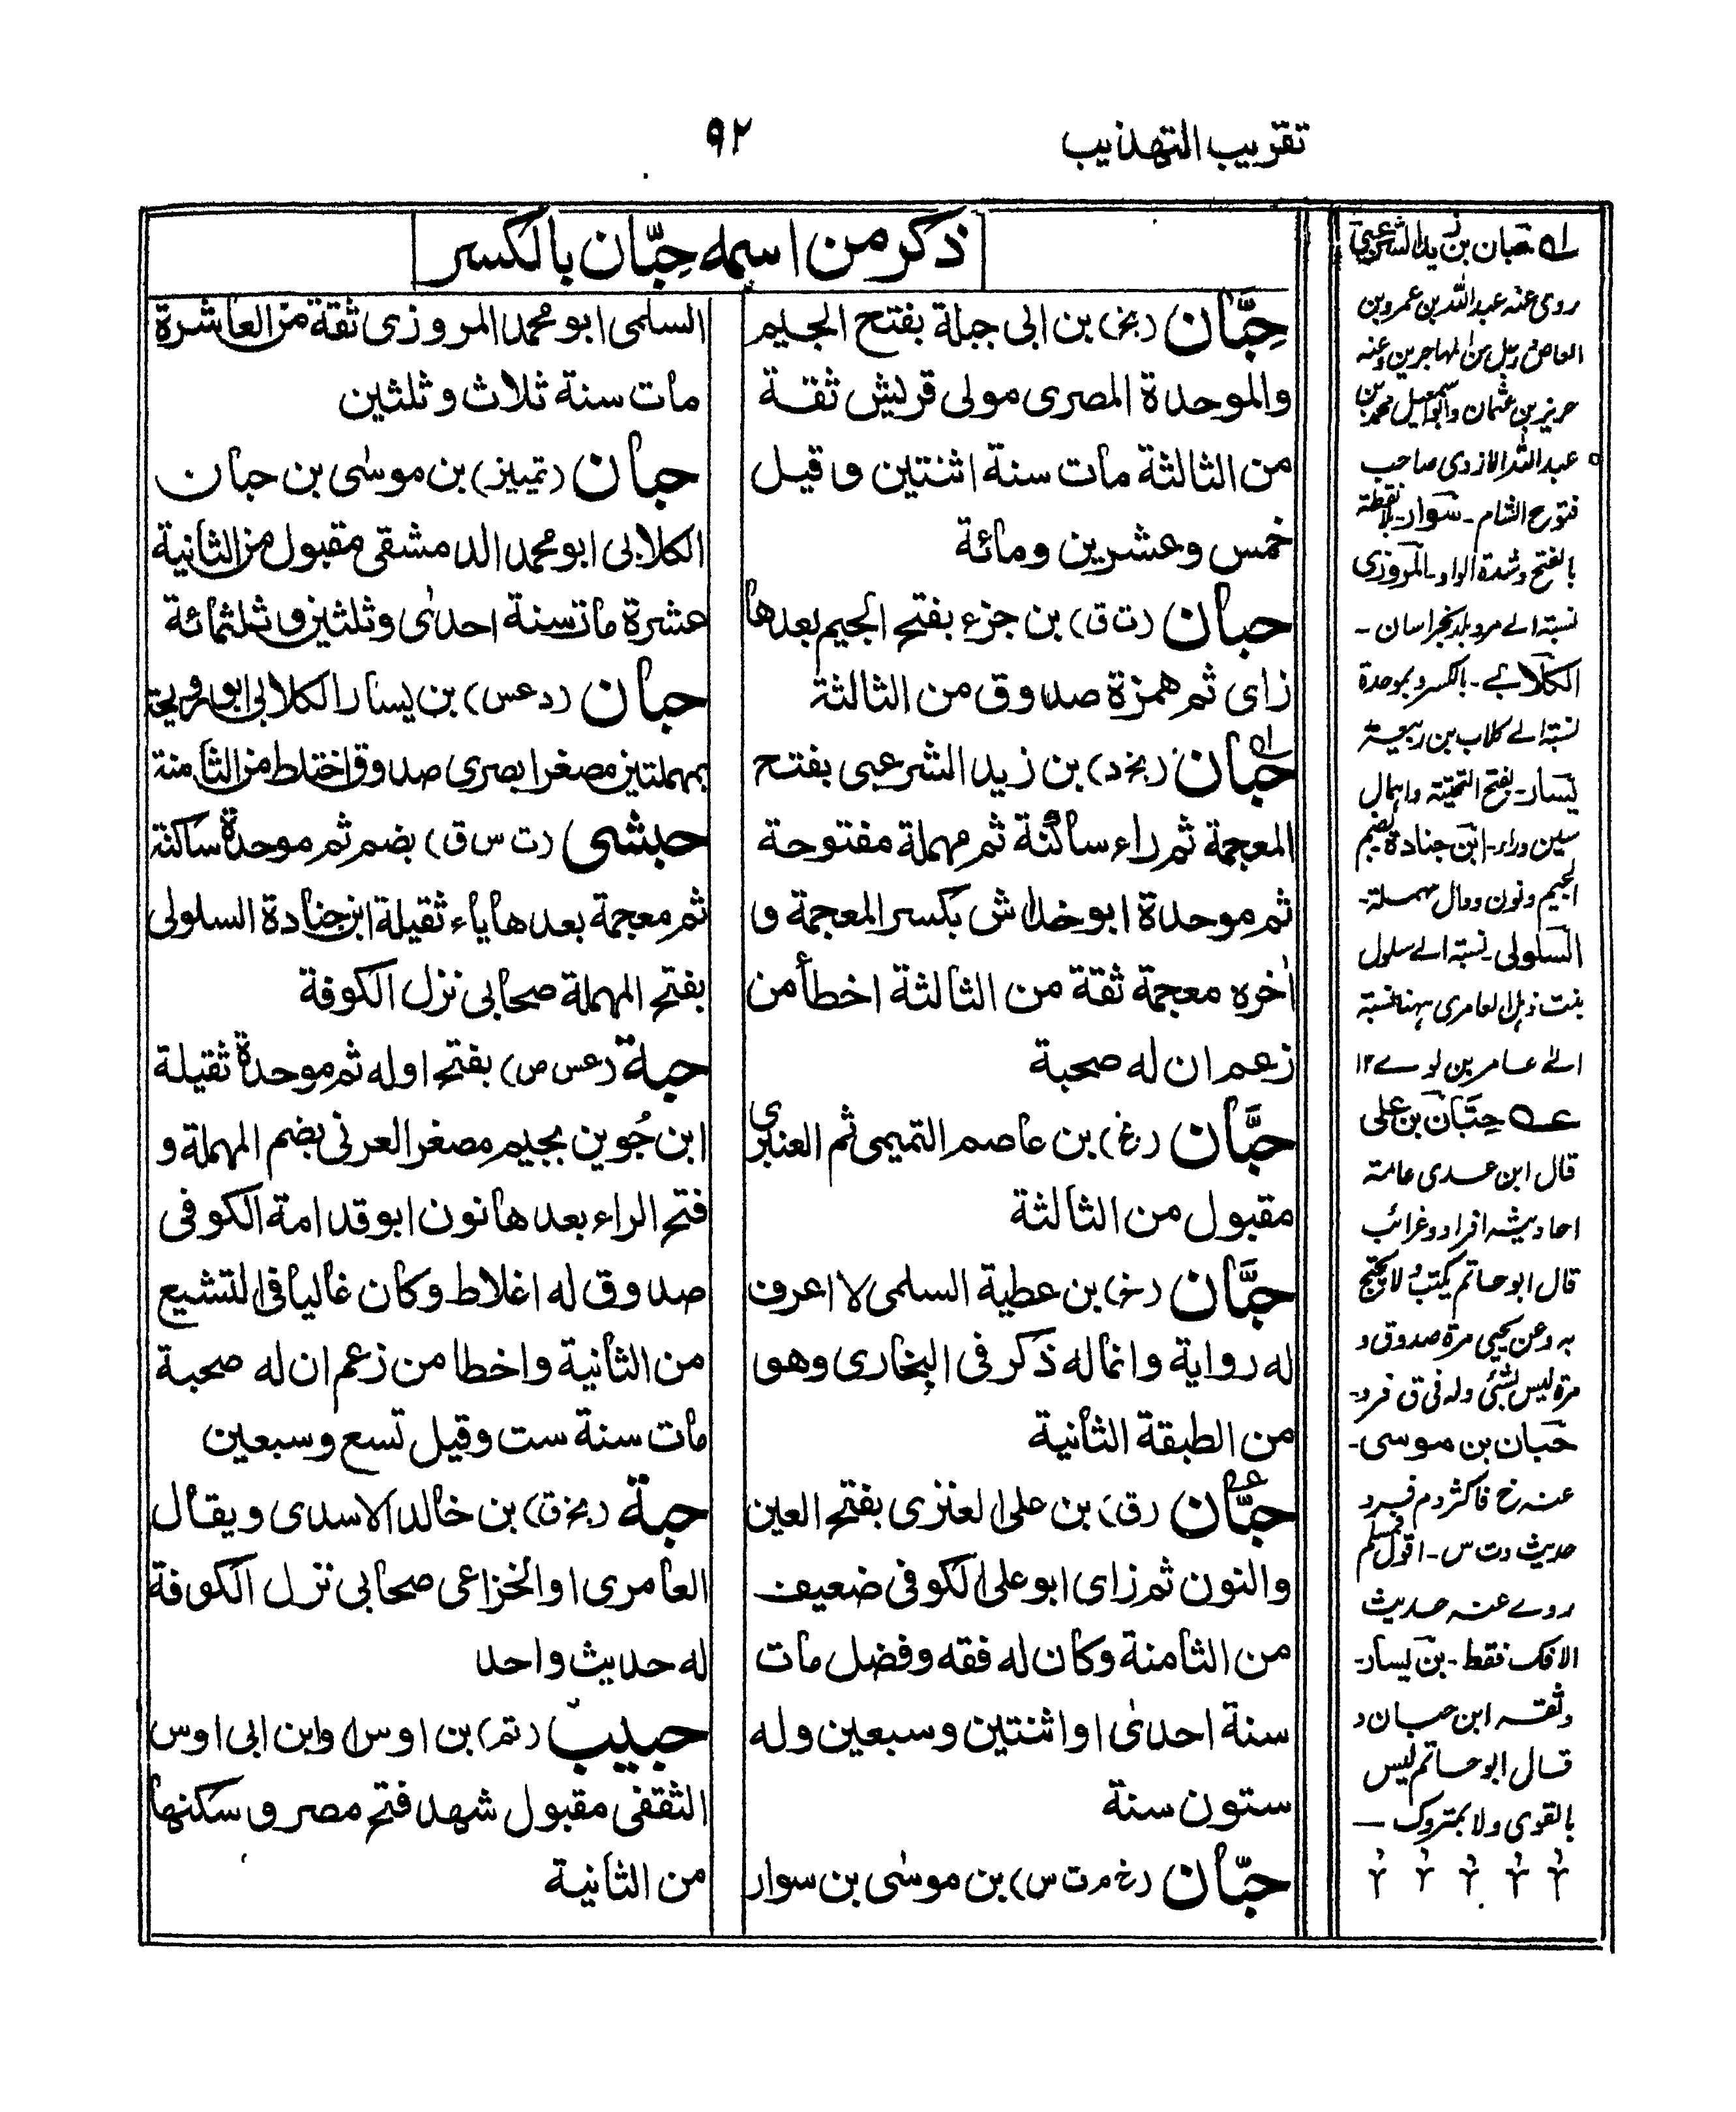 تقريب التهذيب
٩٢
ذكر من اسمه حِبّان بالكسر
حِبَّان (بخ) بن ابى جبلة بفتح الجيم
والموحدة المصرى مولى قريش ثقة
من الثالثة مات سنة اثنتين وقيل
خمس وعشرين ومائة
حبان (ت ق) بن جزء بفتح الجيم بعدها
زاى ثم همزة صدوق من الثالثة
حبان (بخ د) بن زيد الشرعبى بفتح
المعجمة ثم راء ساكنة ثم مهملة مفتوحة
ثم موحدة ابو خداش بكسر المعجمة و
اٰخره معجمة ثقة من الثالثة اخطأ من
زعم ان له صحبة
حبَّان (بخ) بن عاصم التميمى ثم العنبرى
مقبول من الثالثة
حبَّان (خ) بن عطية السلمى لا اعرف
له رواية وانما له ذكر فى البخارى وهو
من الطبقة الثانية
حبَّان (ق) بن على العنزى بفتح العين
والنون ثم زاى ابو على الكوفى ضعيف
من الثامنة وكان له فقه وفضل مات
سنة احدىٰ او اثنتين وسبعين وله
ستون سنة
حبّان (خ م ت س) بن موسٰى بن سوار
السلمى ابو محمد المروزى ثقة من العاشرة
مات سنة ثلاث وثلثين
حبان (تمييز) بن موسٰى بن حبان
الكلابى ابو محمد الدمشقى مقبول من الثانية
عشرة مات سنة احدىٰ وثلثين وثلثمائة
حبان (د عس) بن يسار الكلابى ابو رويحة
بمهملتين مصغرا بصرى صدوق اختلط من الثامنة
حبشى (ت س ق) بضم ثم موحدة ساكنة
ثم معجمة بعدها ياء ثقيلة ابن جنادة السلولى
بفتح المهملة صحابى نزل الكوفة
حبة (عس ص) بفتح اوله ثم موحدة ثقيلة
ابن جُوين بجيم مصغر العرنى بضم المهملة و
فتح الراء بعدها نون ابو قدامة الكوفى
صدوق له اغلاط وكان غاليا فى التشيع
من الثانية واخطا من زعم ان له صحبة
مات سنة ست وقيل تسع وسبعين
حبة (بخ ق) بن خالد الاسدى ويقال
العامرى او الخزاعى صحابى نزل الكوفة
له حديث واحد
حبيب (تم) بن اوس او ابن ابى اوس
الثقفى مقبول شهد فتح مصر وسكنها
من الثانية
له حبان بن زيد الشرعبى
روى عنه عبد الله بن عمرو بن
العاص ورجل من المهاجرين وعنه
حريز بن عثمان وابو اسمعيل محمد بن
عبد الله الازدى صاحب
فتوح الشام ـ سوار ـ بلا نقطة
بالفتح وشدة الواو ـ المروزى
نسبة الے مرو بلد بخراسان ـ
الكلابے ـ بالكسر وبموحدة
نسبة الے كلاب بن ربيعة
يسار ـ بفتح التحتية واهمال
سين وراء ـ ابن جنادة بضم
الجيم ونون ودال مهملة ـ
السلولى ـ نسبة الے سلول
بنت ذهل العامرى ههنا نسبة
الے عامر بن لوے ١٢
عه حِبَّان بن على
قال ابن عدى عامة
احاديثه افراد وغرائب
قال ابو حاتم يكتب ولا يحتج
به وعن يحيى مرة صدوق و
مرة ليس بشئى وله فى ق فرد ـ
حبان بن موسى ـ
عنه خ فاكثر و م فرد
حديث و ت س ـ اقول فمسلم
روے عنه حديث
الافك فقط ـ بن يسار ـ
وثقه ابن حبان و
قال ابو حاتم ليس
بالقوى ولا بمتروك ـ